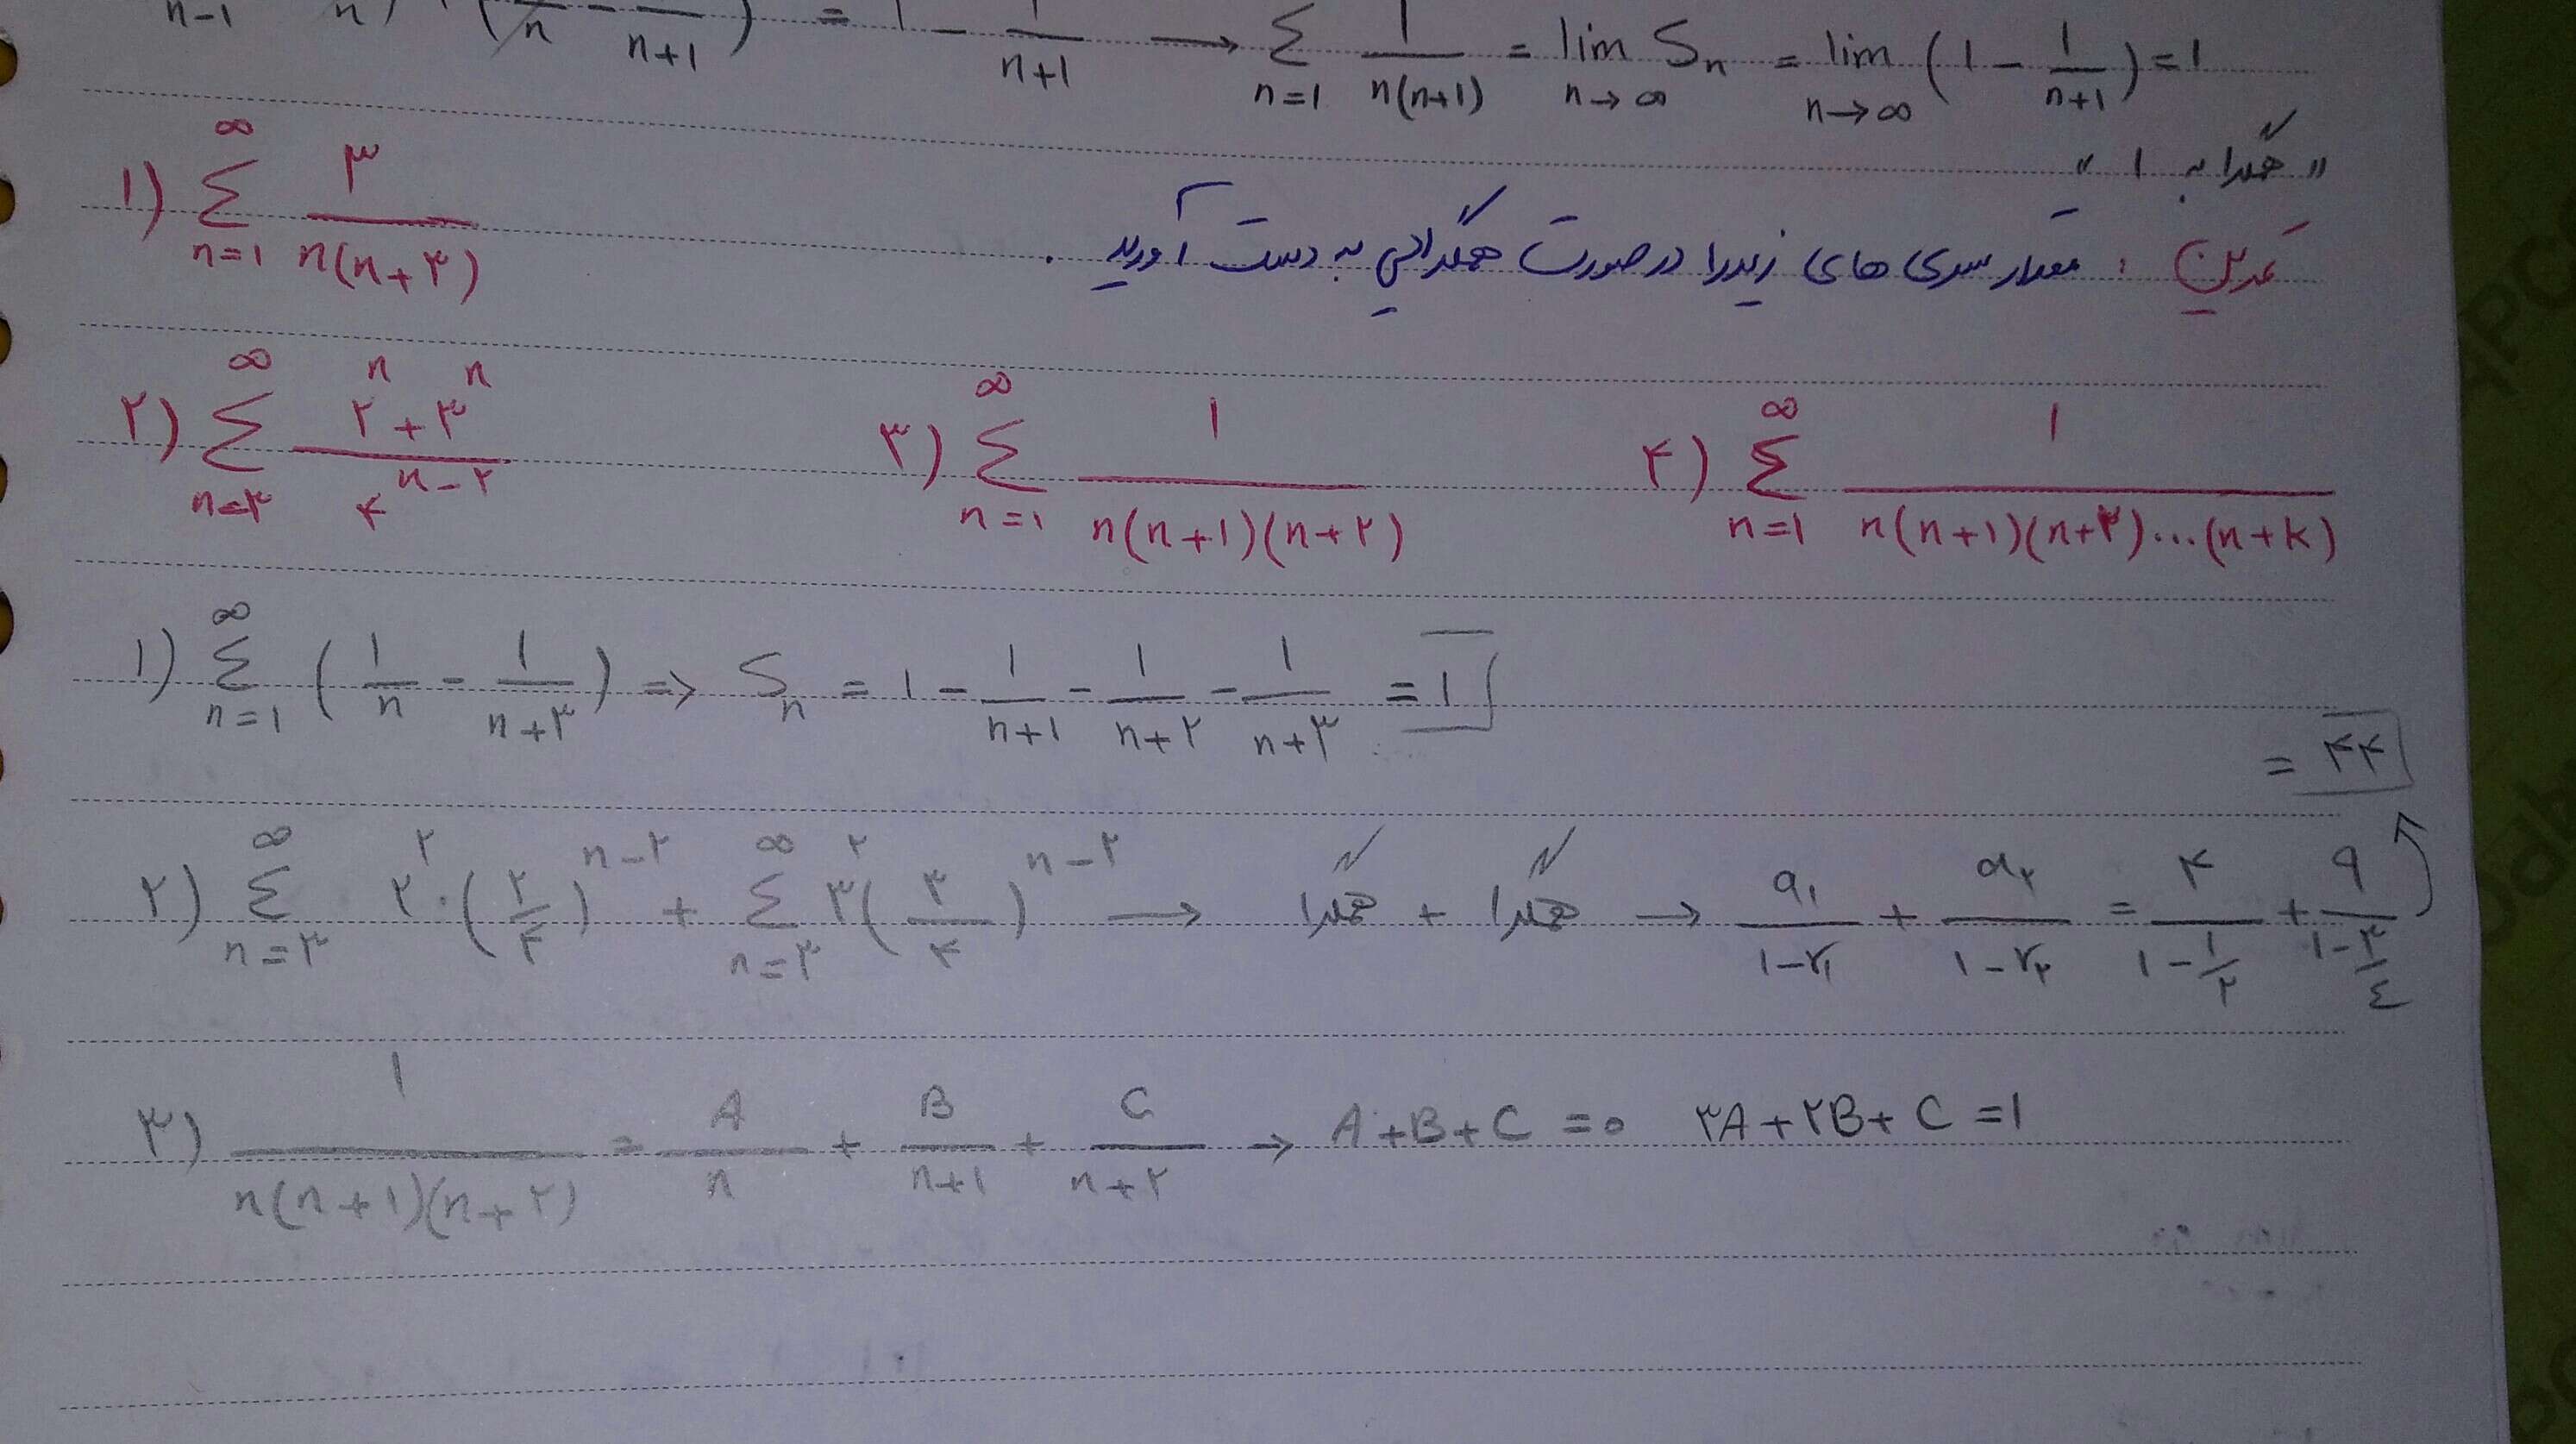 n-1 n n n+1 = 1 - 1/(n+1) → Σ n=1 1/(n(n+1)) = lim n→∞ Sn = lim n→∞ (1 - 1/(n+1)) = 1
"همگرا به ۱"
تمرین : مقدار سری های زیر را در صورت همگرایی به دست آورید .
۱) Σ n=1 ∞ ۳/(n(n+۳))
۲) Σ n=۳ ∞ (۲^n + ۳^n)/۴^(n-۲) ۳) Σ n=1 ∞ ۱/(n(n+1)(n+۲)) ۴) Σ n=1 ∞ ۱/(n(n+1)(n+۲)...(n+k))
۱) Σ n=1 ∞ (1/n - 1/(n+۳)) => Sn = 1 - 1/(n+1) - 1/(n+۲) - 1/(n+۳) = 1
۲) Σ n=۳ ∞ ۲^۲.(۲/۴)^(n-۲) + Σ n=۳ ∞ ۳^۲(۳/۴)^(n-۲) → همگرا + همگرا → a۱/(1-r۱) + a۲/(1-r۲) = ۴/(1-1/۲) + ۹/(1-۳/٤) = ۴۴
۳) 1/(n(n+1)(n+۲)) = A/n + B/(n+1) + C/(n+۲) → A+B+C=0 ۳A+۲B+C=1